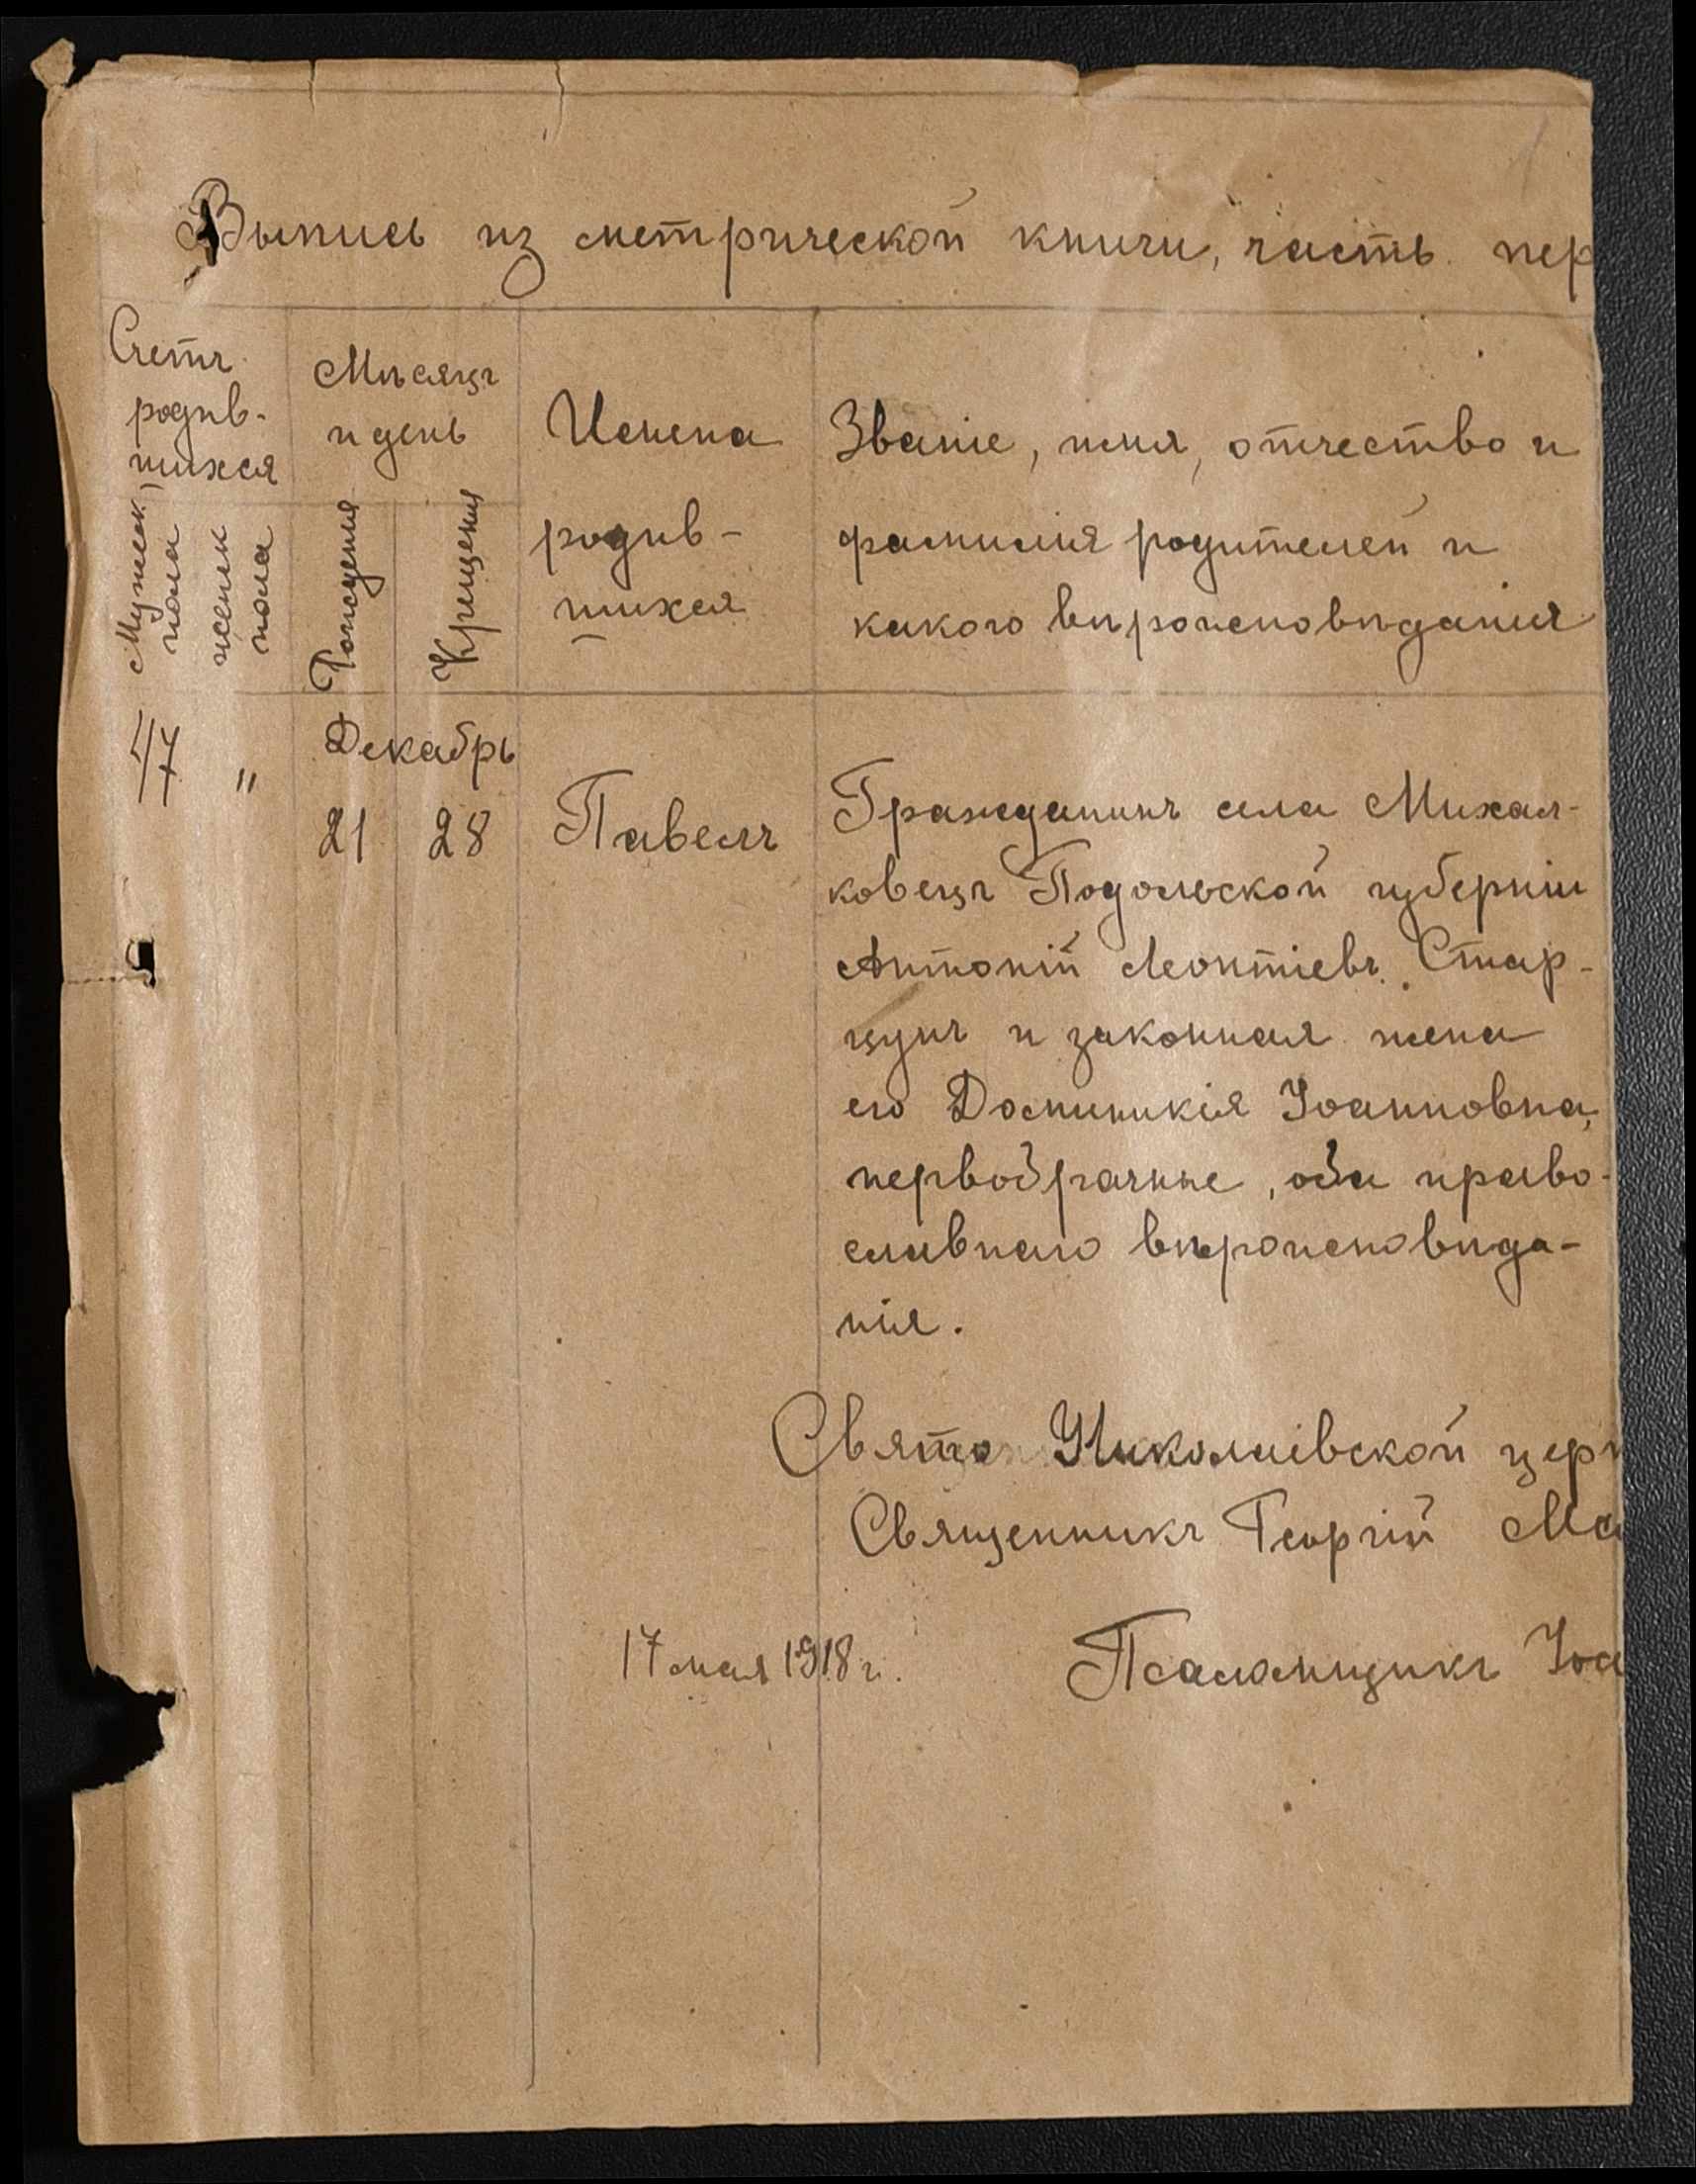 Выпись из метрической книги, часть пер
Счетъ
родив-
шихся
Мужеск.
пола
женск
пола
Мѣсяцъ
и день
Рождения
Крещения
Имена
родив-
шихся
Званіе, имя, отчество и
фамилия родителей и
какого вѣроисповѣданія
47 "
Декабрь
21 28
Павелъ
Гражданинъ села Михал-
ковецъ Подольской губерніи
Антоній Леонтіевъ Стар-
цунъ и законная жена
его Доминикія Іоанновна,
первобрачные, оба право-
славнаго вѣроисповѣда-
нія.
Свято Николаівской церк
Священникъ Георгій Ма
17 мая 1918 г.
Псаломщикъ Іоа